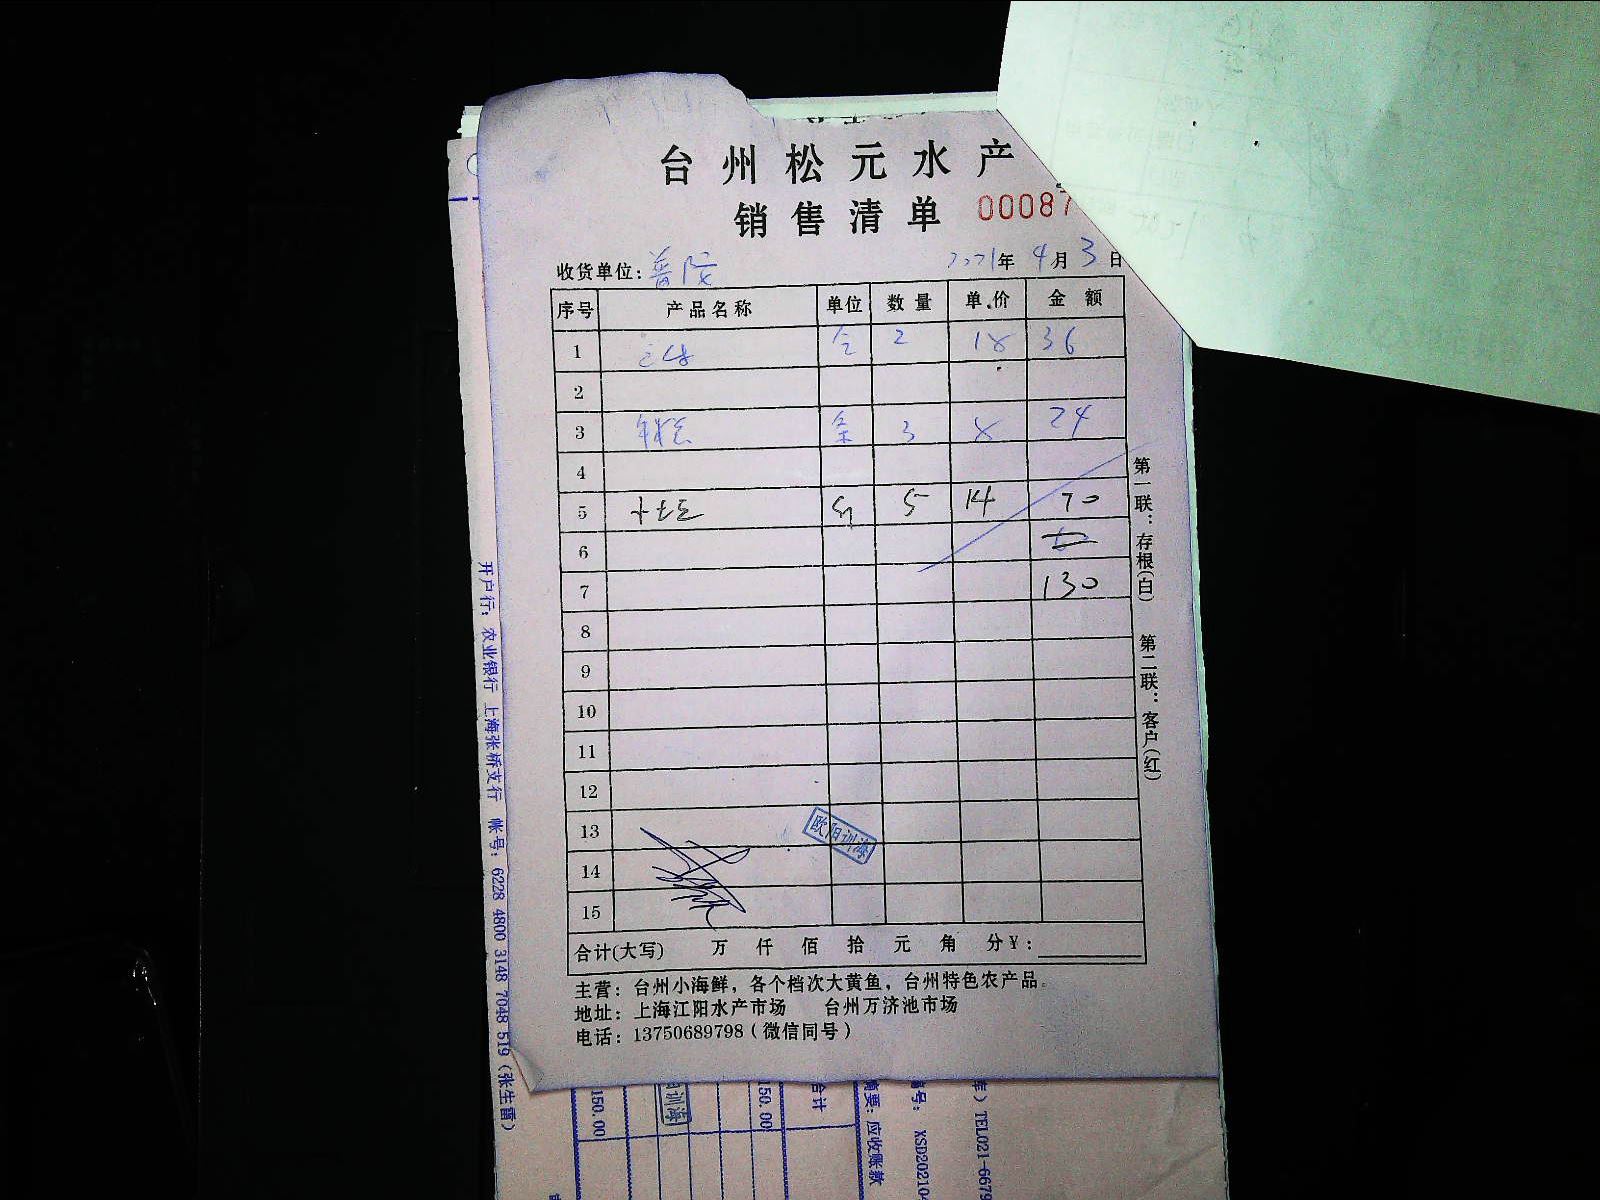 台州松元水产
销售清单 00087
收货单位: 普陀 2021年4月3日
序号 产品名称 单位 数量 单价 金额
1 2 18 36
2
3 年糕 条 3 8 24
4
5 5 14 70
6
7 130
8
9
10
11
12
13 欧阳训海
14
15
合计(大写) 万 仟 佰 拾 元 角 分 ¥:
主营: 台州小海鲜, 各个档次大黄鱼, 台州特色农产品。
地址: 上海江阳水产市场 台州万济池市场
电话: 13750689798(微信同号)
第一联: 存根(白) 第二联: 客户(红)
开户行: 农业银行 上海张桥支行 帐号: 6228 4800 3148 7048 519 (张生雷)
150.00
训海
150.00
合计
摘要: 应收账款
号: XSD20210
TEL021-6679